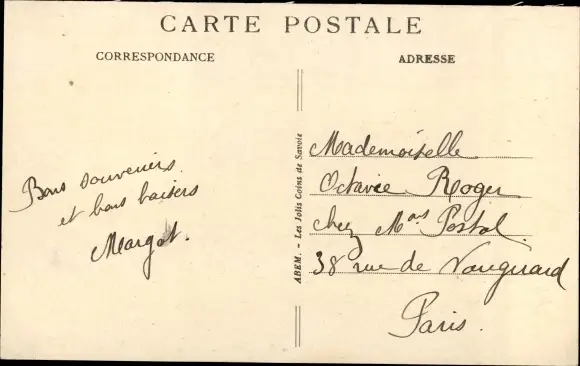 CARTE POSTALE
CORRESPONDANCE
ADRESSE
Bons souvenirs
et bons baisers
Margot.
ABEM. - Les Jolis Coins de Savoie
Mademoiselle
Octavie Roger
chez Mas Postol.
38 rue de Vaugirard
Paris.